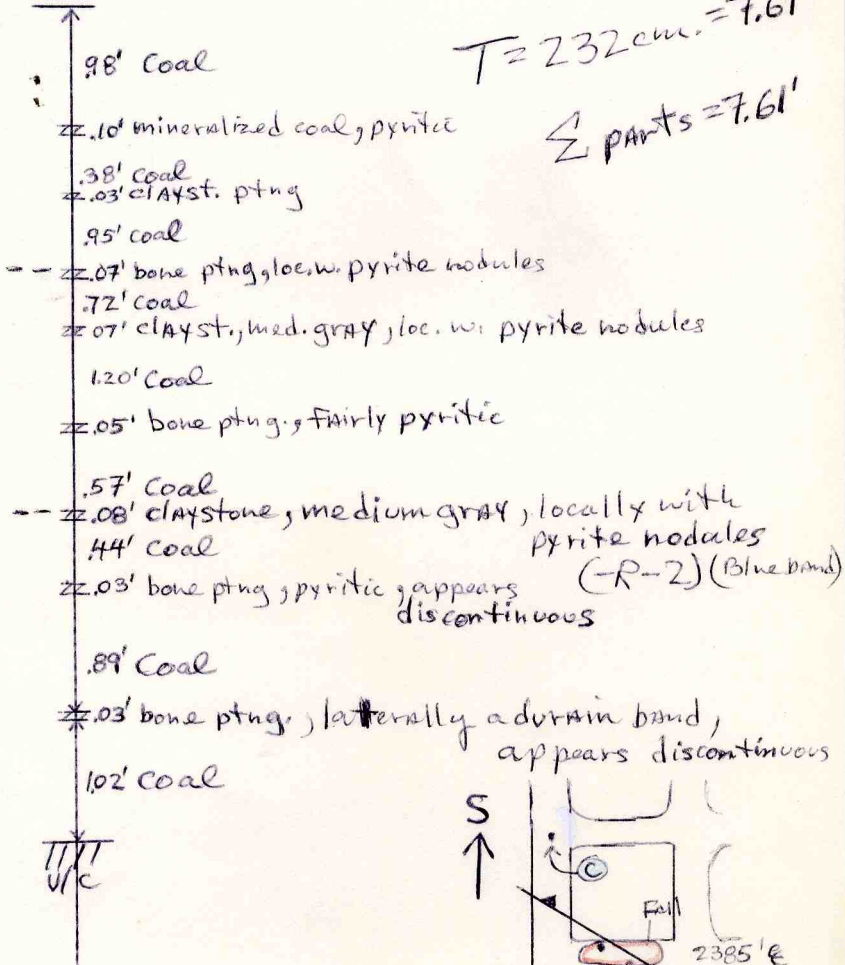 .98' Coal
T = 232 cm. = 7.61'
.10' mineralized coal, pyritic
Σ parts = 7.61'
.38' Coal
.03' clayst. ptng
.95' coal
.07' bone ptng, loc. w. pyrite nodules
.72' Coal
.07' clayst., med. gray, loc. w. pyrite nodules
1.20' Coal
.05' bone ptng., fairly pyritic
.57' Coal
.08' claystone, medium gray, locally with
pyrite nodules
.44' Coal
(-R-2) (Blue band)
.03' bone ptng, pyritic, appears
discontinuous
.89' Coal
.03' bone ptng., laterally a durain band,
appears discontinuous
1.02' Coal
S
U/C
C
Fall
2385' ℄